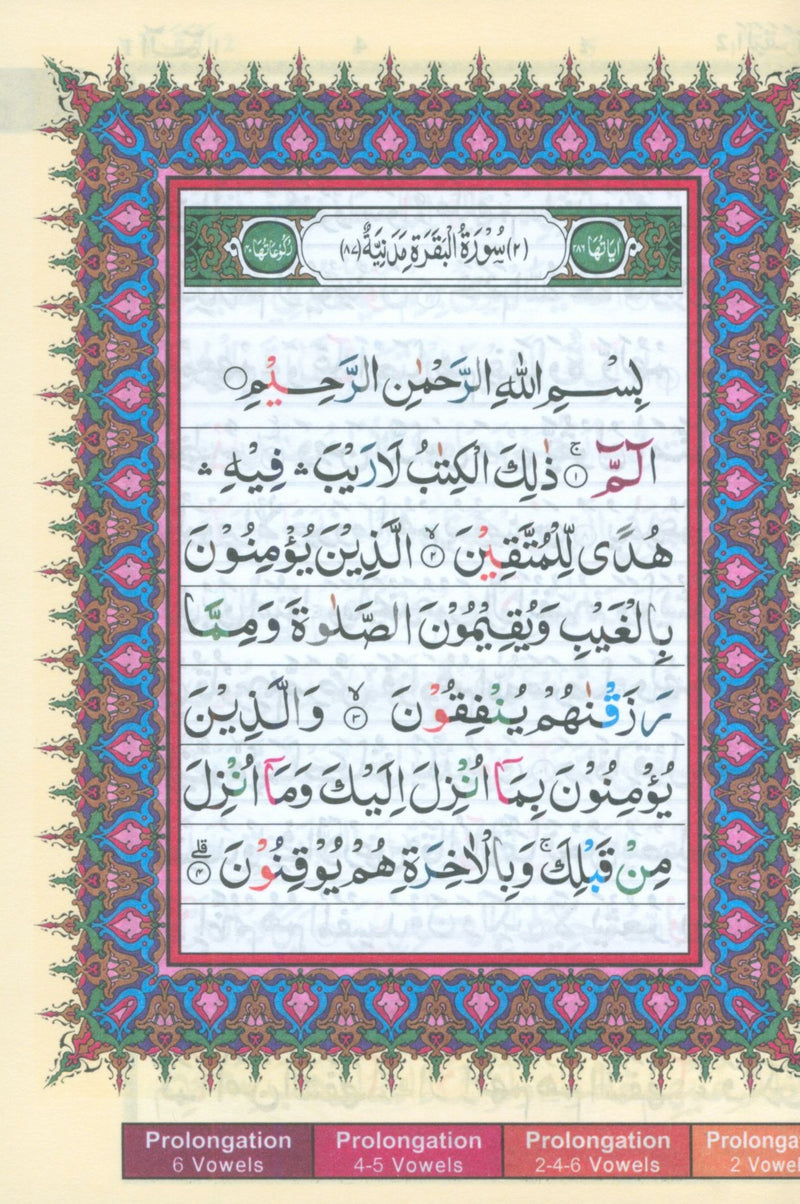 اٰيَاتُهَا ٢٨٦ (٢) سُوْرَةُ الْبَقَرَةِ مَدَنِيَّةٌ (٨٧) رُكُوْعَاتُهَا ٤٠
بِسْمِ اللهِ الرَّحْمٰنِ الرَّحِيْمِ ○
الٓمّٓ ۚ ١ ذٰلِكَ الْكِتٰبُ لَا رَيْبَ ۛ فِيْهِ ۛ
هُدًى لِّلْمُتَّقِيْنَ ۙ ٢ الَّذِيْنَ يُؤْمِنُوْنَ
بِالْغَيْبِ وَيُقِيْمُوْنَ الصَّلٰوةَ وَمِمَّا
رَزَقْنٰهُمْ يُنْفِقُوْنَ ۙ ٣ وَالَّذِيْنَ
يُؤْمِنُوْنَ بِمَآ اُنْزِلَ اِلَيْكَ وَمَآ اُنْزِلَ
مِنْ قَبْلِكَ ۚ وَبِالْاٰخِرَةِ هُمْ يُوْقِنُوْنَ ۗ ٤
Prolongation Prolongation Prolongation Prolonga
6 Vowels 4-5 Vowels 2-4-6 Vowels 2 Vowel